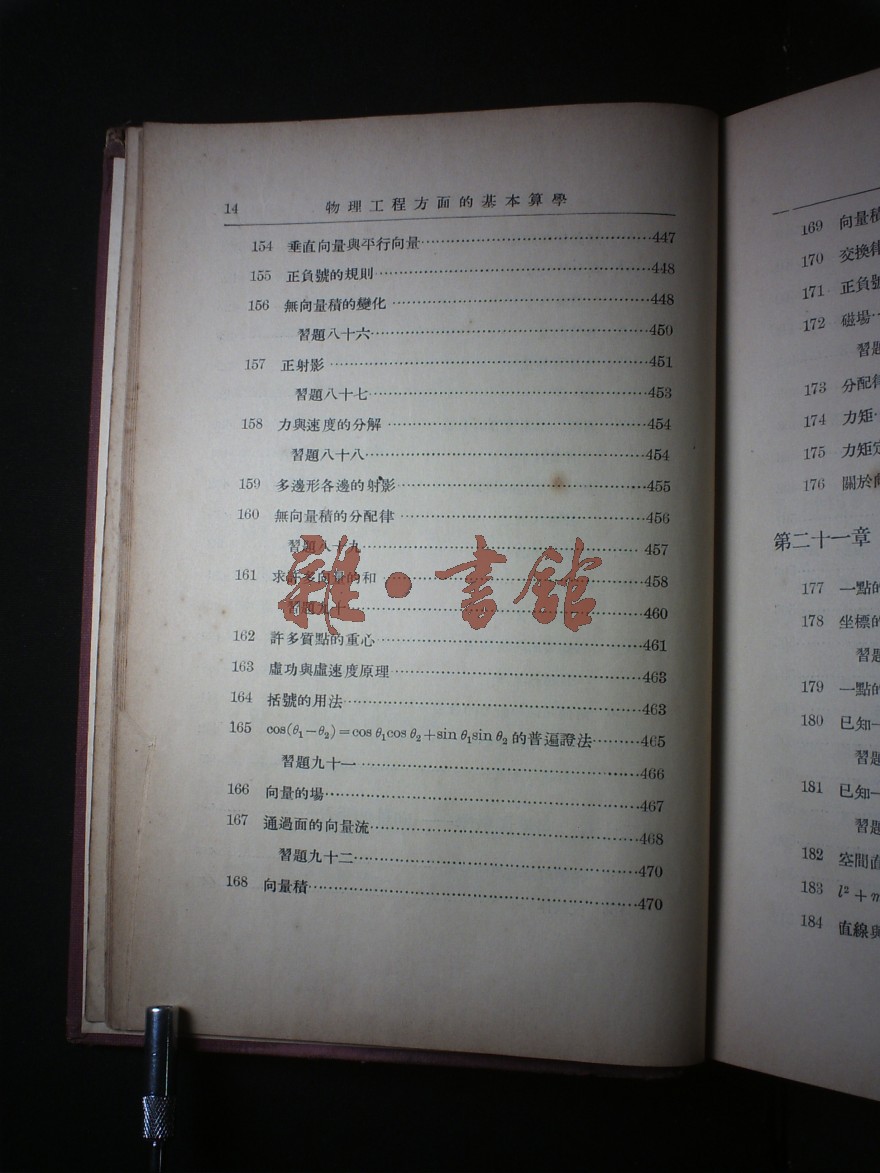 14 物理工程方面的基本算學
154 垂直向量與平行向量…447
155 正負號的規則…448
156 無向量積的變化…448
習題八十六…450
157 正射影…451
習題八十七…453
158 力與速度的分解…454
習題八十八…454
159 多邊形各邊的射影…455
160 無向量積的分配律…456
習題八十九…457
161 求許多向量的和…458
習題九十…460
162 許多質點的重心…461
163 虛功與虛速度原理…463
164 括號的用法…463
165 cos(θ₁−θ₂)=cos θ₁cos θ₂+sin θ₁sin θ₂ 的普遍證法…465
習題九十一…466
166 向量的場…467
167 通過面的向量流…468
習題九十二…470
168 向量積…470
雜·書館
169 向量積
170 交換律
171 正負號
172 磁場…
習題
173 分配律
174 力矩
175 力矩定
176 關於向
第二十一章
177 一點的
178 坐標的
習題
179 一點的
180 已知一
習題
181 已知一
習題
182 空間直
183 l²+m
184 直線與